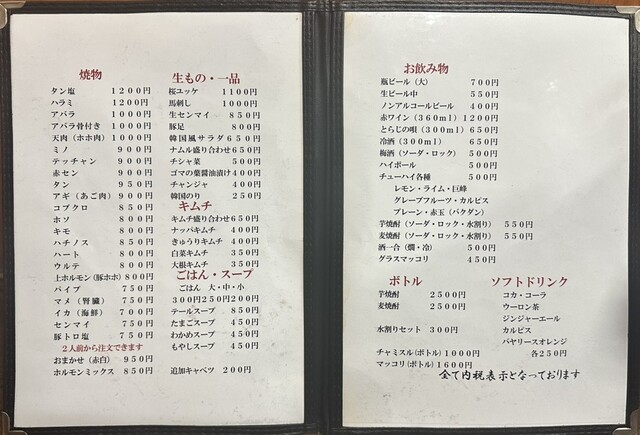 焼物
タン塩 1200円
ハラミ 1200円
アバラ 1000円
アバラ骨付き 1000円
天肉(ホホ肉) 1000円
ミノ 900円
テッチャン 900円
赤セン 900円
タン 950円
アギ(あご肉) 900円
コブクロ 850円
ホソ 800円
キモ 800円
ハチノス 850円
ハート 800円
ウルテ 800円
上ホルモン(豚ホホ) 800円
パイプ 750円
マメ(腎臓) 750円
イカ(海鮮) 700円
センマイ 750円
豚トロ塩 750円
2人前から注文できます
おまかせ(赤白) 950円
ホルモンミックス 850円
生もの・一品
桜ユッケ 1100円
馬刺し 1000円
生センマイ 850円
豚足 800円
韓国風サラダ 650円
ナムル盛り合わせ 650円
チシャ菜 500円
ゴマの葉醤油漬け 400円
チャンジャ 400円
韓国のり 250円
キムチ
キムチ盛り合わせ 650円
ナッパキムチ 400円
きゅうりキムチ 400円
白菜キムチ 350円
大根キムチ 350円
ごはん・スープ
ごはん 大・中・小
300円 250円 200円
テールスープ 850円
たまごスープ 450円
わかめスープ 450円
もやしスープ 450円
追加キャベツ 200円
お飲み物
瓶ビール(大) 700円
生ビール中 550円
ノンアルコールビール 400円
赤ワイン(360ml) 1200円
とらじの唄(300ml) 650円
冷酒(300ml) 650円
梅酒(ソーダ・ロック) 500円
ハイボール 500円
チューハイ各種 500円
レモン・ライム・巨峰
グレープフルーツ・カルピス
プレーン・赤玉(バクダン)
芋焼酎(ソーダ・ロック・水割り) 550円
麦焼酎(ソーダ・ロック・水割り) 550円
酒一合(燗・冷) 500円
グラスマッコリ 450円
ボトル
芋焼酎 2500円
麦焼酎 2500円
水割りセット 300円
チャミスル(ボトル) 1000円
マッコリ(ボトル) 1600円
ソフトドリンク
コカ・コーラ
ウーロン茶
ジンジャーエール
カルピス
バヤリースオレンジ
各250円
全て内税表示となっております